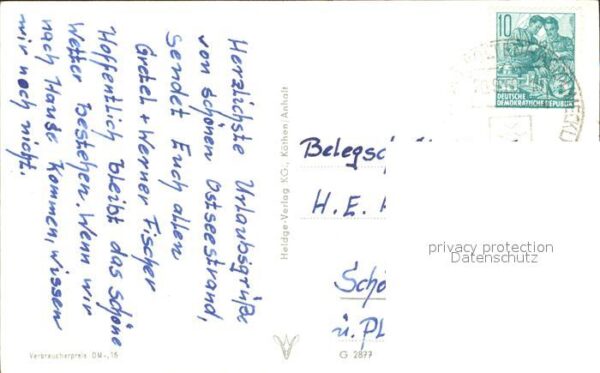 Herzlichste Urlaubsgrüße
von schönen Ostseestrand,
sendet Euch allen
Gretel + Werner Fischer
Hoffentlich bleibt das schöne
Wetter bestehen. Wenn wir
nach Hause kommen, wissen
wir noch nicht.
Verbraucherpreis DM -,16
Heldge-Verlag KG., Köthen/Anhalt
10
DEUTSCHE
DEMOKRATISCHE REPUBLIK
H. E.
u. Pl
G 2877
privacy protection
Datenschutz